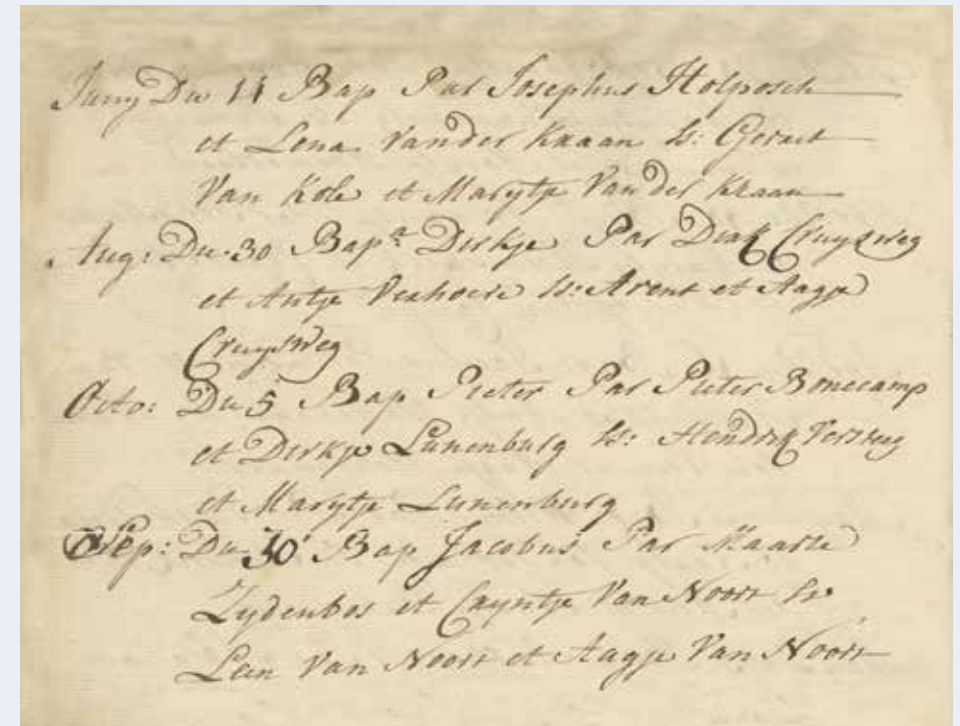 Juny Du 11 Bap Par Josephus Holposch
et Lena Van der Kraan ss: Geract
Van Kole et Marytje Van der Kraan
Aug: Du 30 Bap.a Dirkje Par Dirk Cruysweg
et Antje Verhoeve ss: Arent et Aagje
Cruysweg
Octo: Du 5 Bap Pieter Par Pieter Bonecamp
et Dirkje Lunenburg ss: Hendrik Versteeg
et Marytje Lunenburg
Sep: Du 30 Bap Jacobus Par Maarte
Zydenbos et Cayntje Van Noort ss
Leen Van Noort et Aagje Van Noort